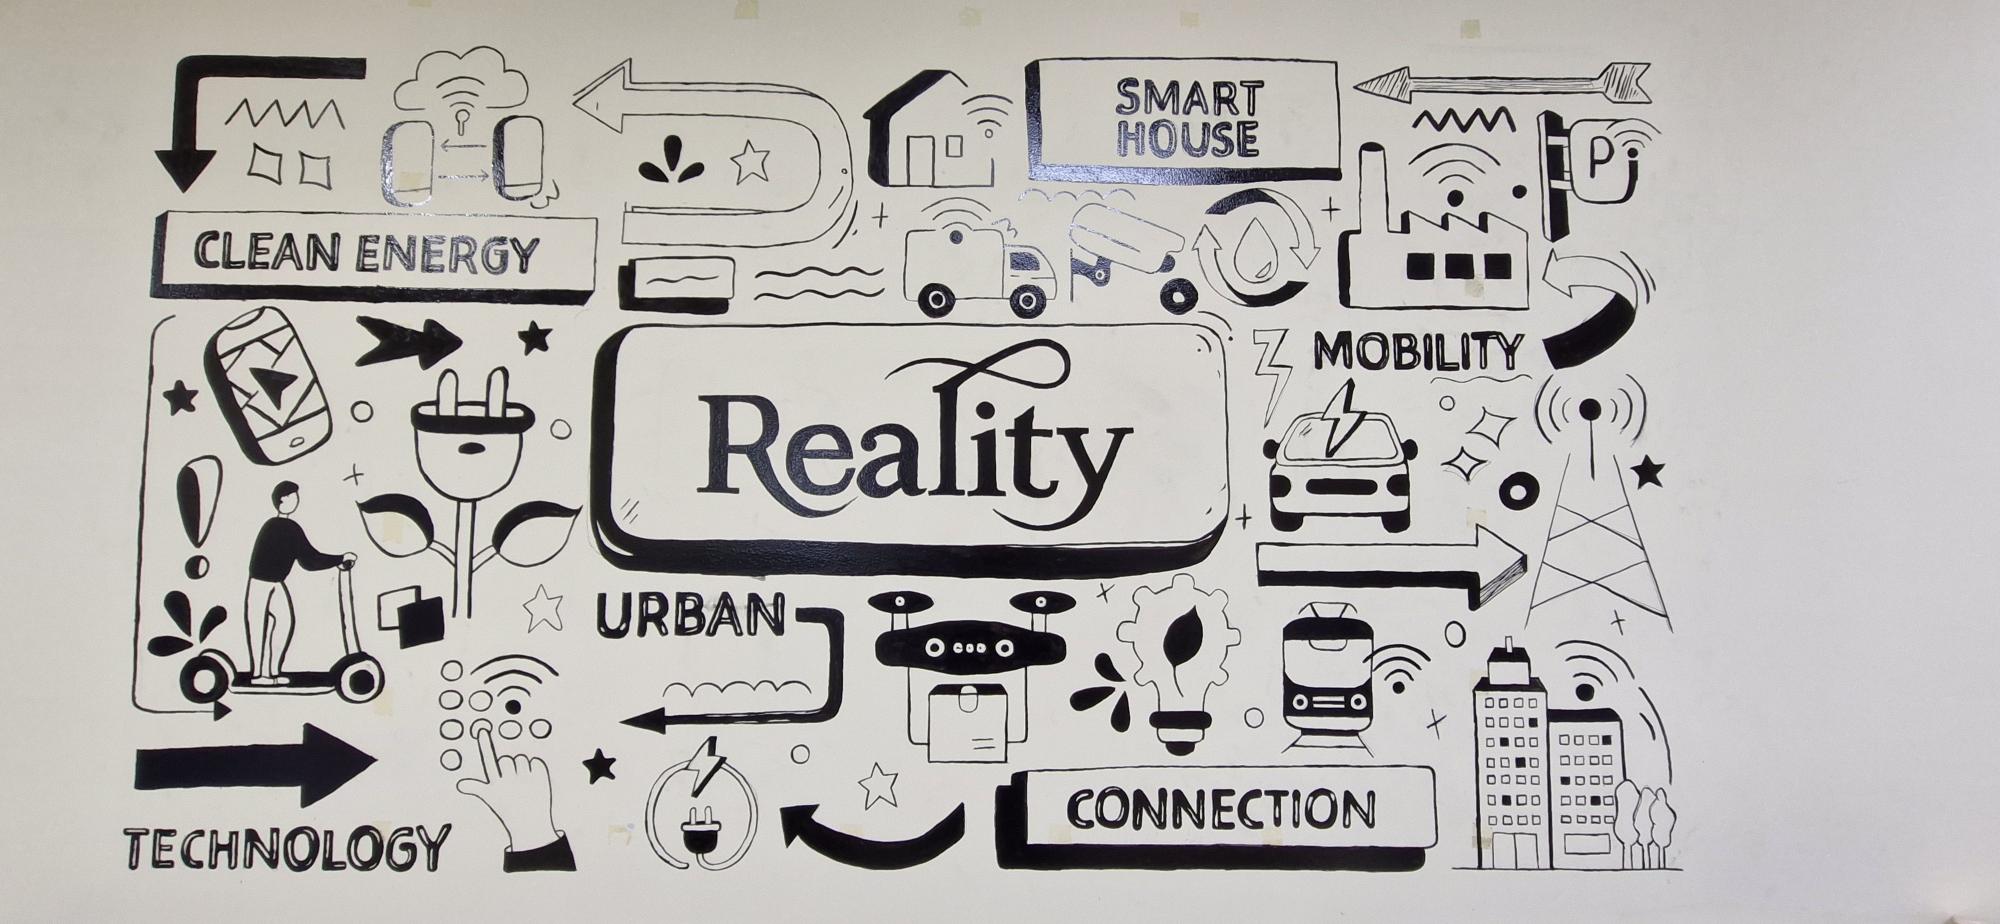 SMART
HOUSE
P
CLEAN ENERGY
MOBILITY
Reality
URBAN
CONNECTION
TECHNOLOGY